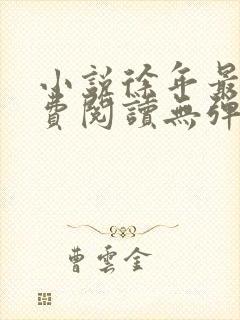 小說徐年最
費閱讀無彈
曹雲金